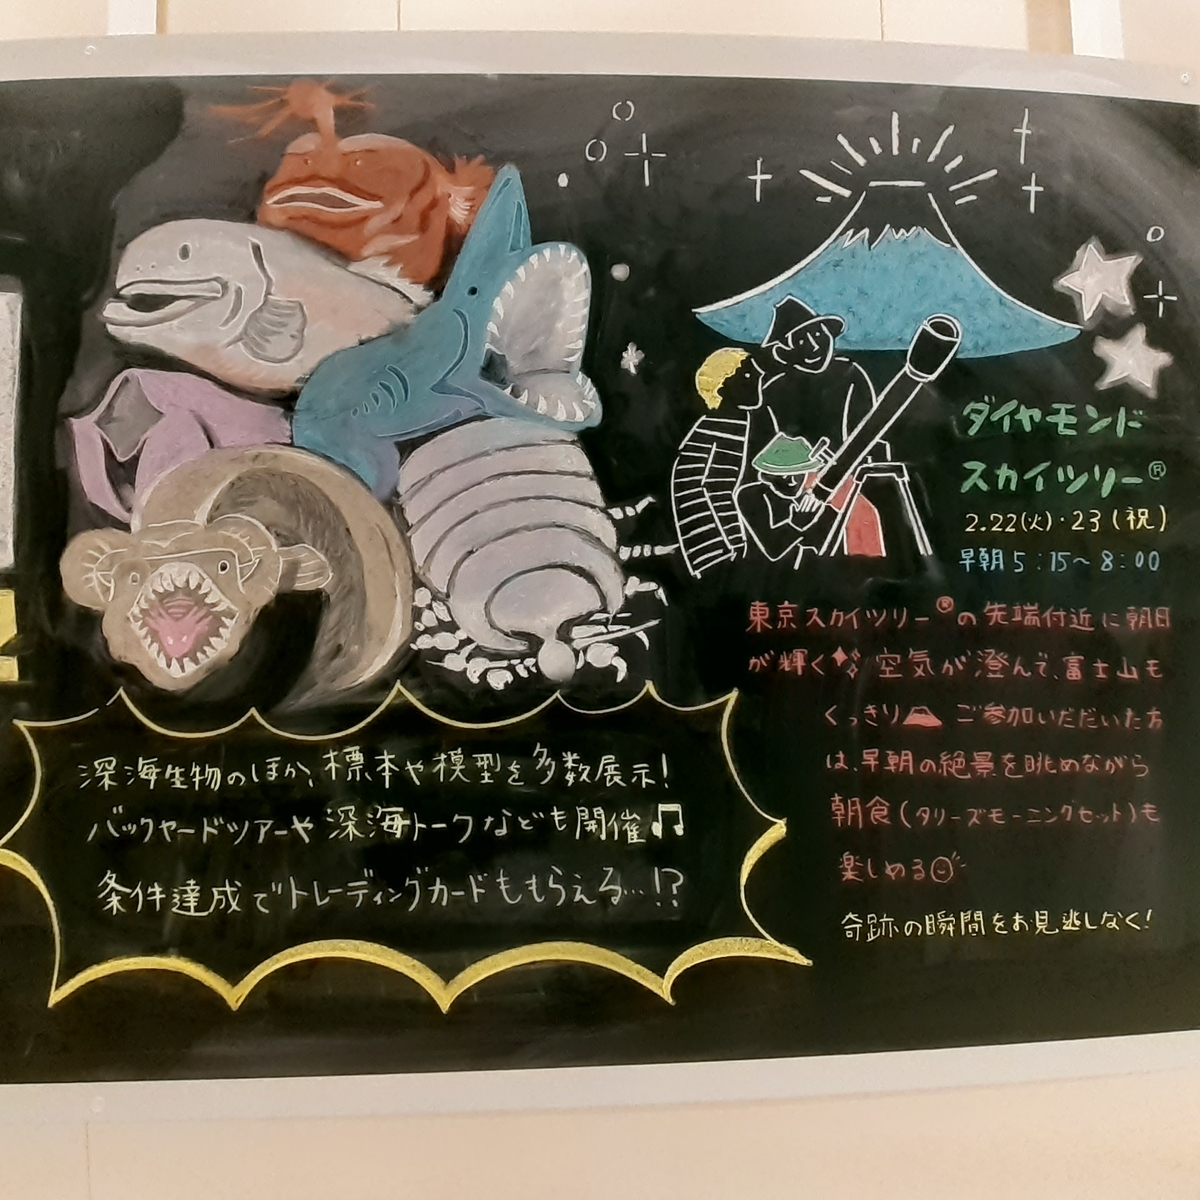 深海生物のほか、標本や模型を多数展示!
バックヤードツアーや深海トークなども開催♫
条件達成でトレーディングカードももらえる…!?
ダイヤモンド
スカイツリー®
2.22(火)・23(祝)
早朝5:15~8:00
東京スカイツリー®の先端付近に朝日
が輝く 空気が澄んで、富士山も
くっきり ご参加いただいた方
は、早朝の絶景を眺めながら
朝食(タリーズモーニングセット)も
楽しめる
奇跡の瞬間をお見逃しなく!